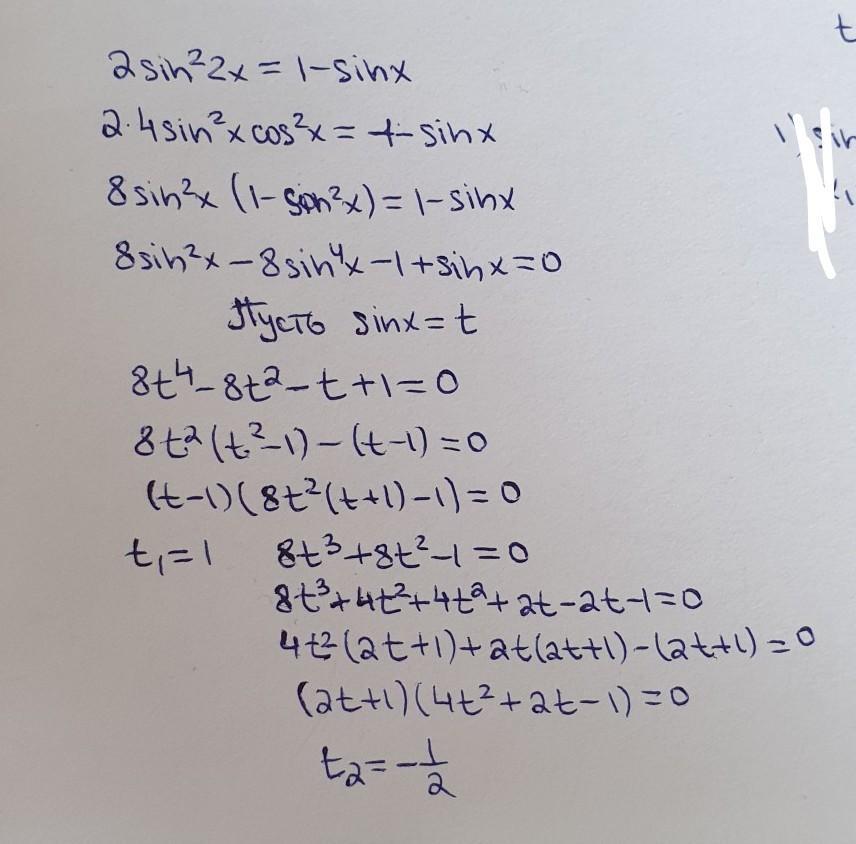 2sin²2x = 1-sinx
2·4sin²xcos²x = 1-sinx
8sin²x (1-sin²x) = 1-sinx
8sin²x - 8sin⁴x - 1 + sinx = 0
Пусть sinx = t
8t⁴ - 8t² - t + 1 = 0
8t²(t²-1) - (t-1) = 0
(t-1)(8t²(t+1)-1) = 0
t₁ = 1 8t³ + 8t² - 1 = 0
8t³ + 4t² + 4t² + 2t - 2t - 1 = 0
4t²(2t+1) + 2t(2t+1) - (2t+1) = 0
(2t+1)(4t² + 2t - 1) = 0
t₂ = -1/2
t